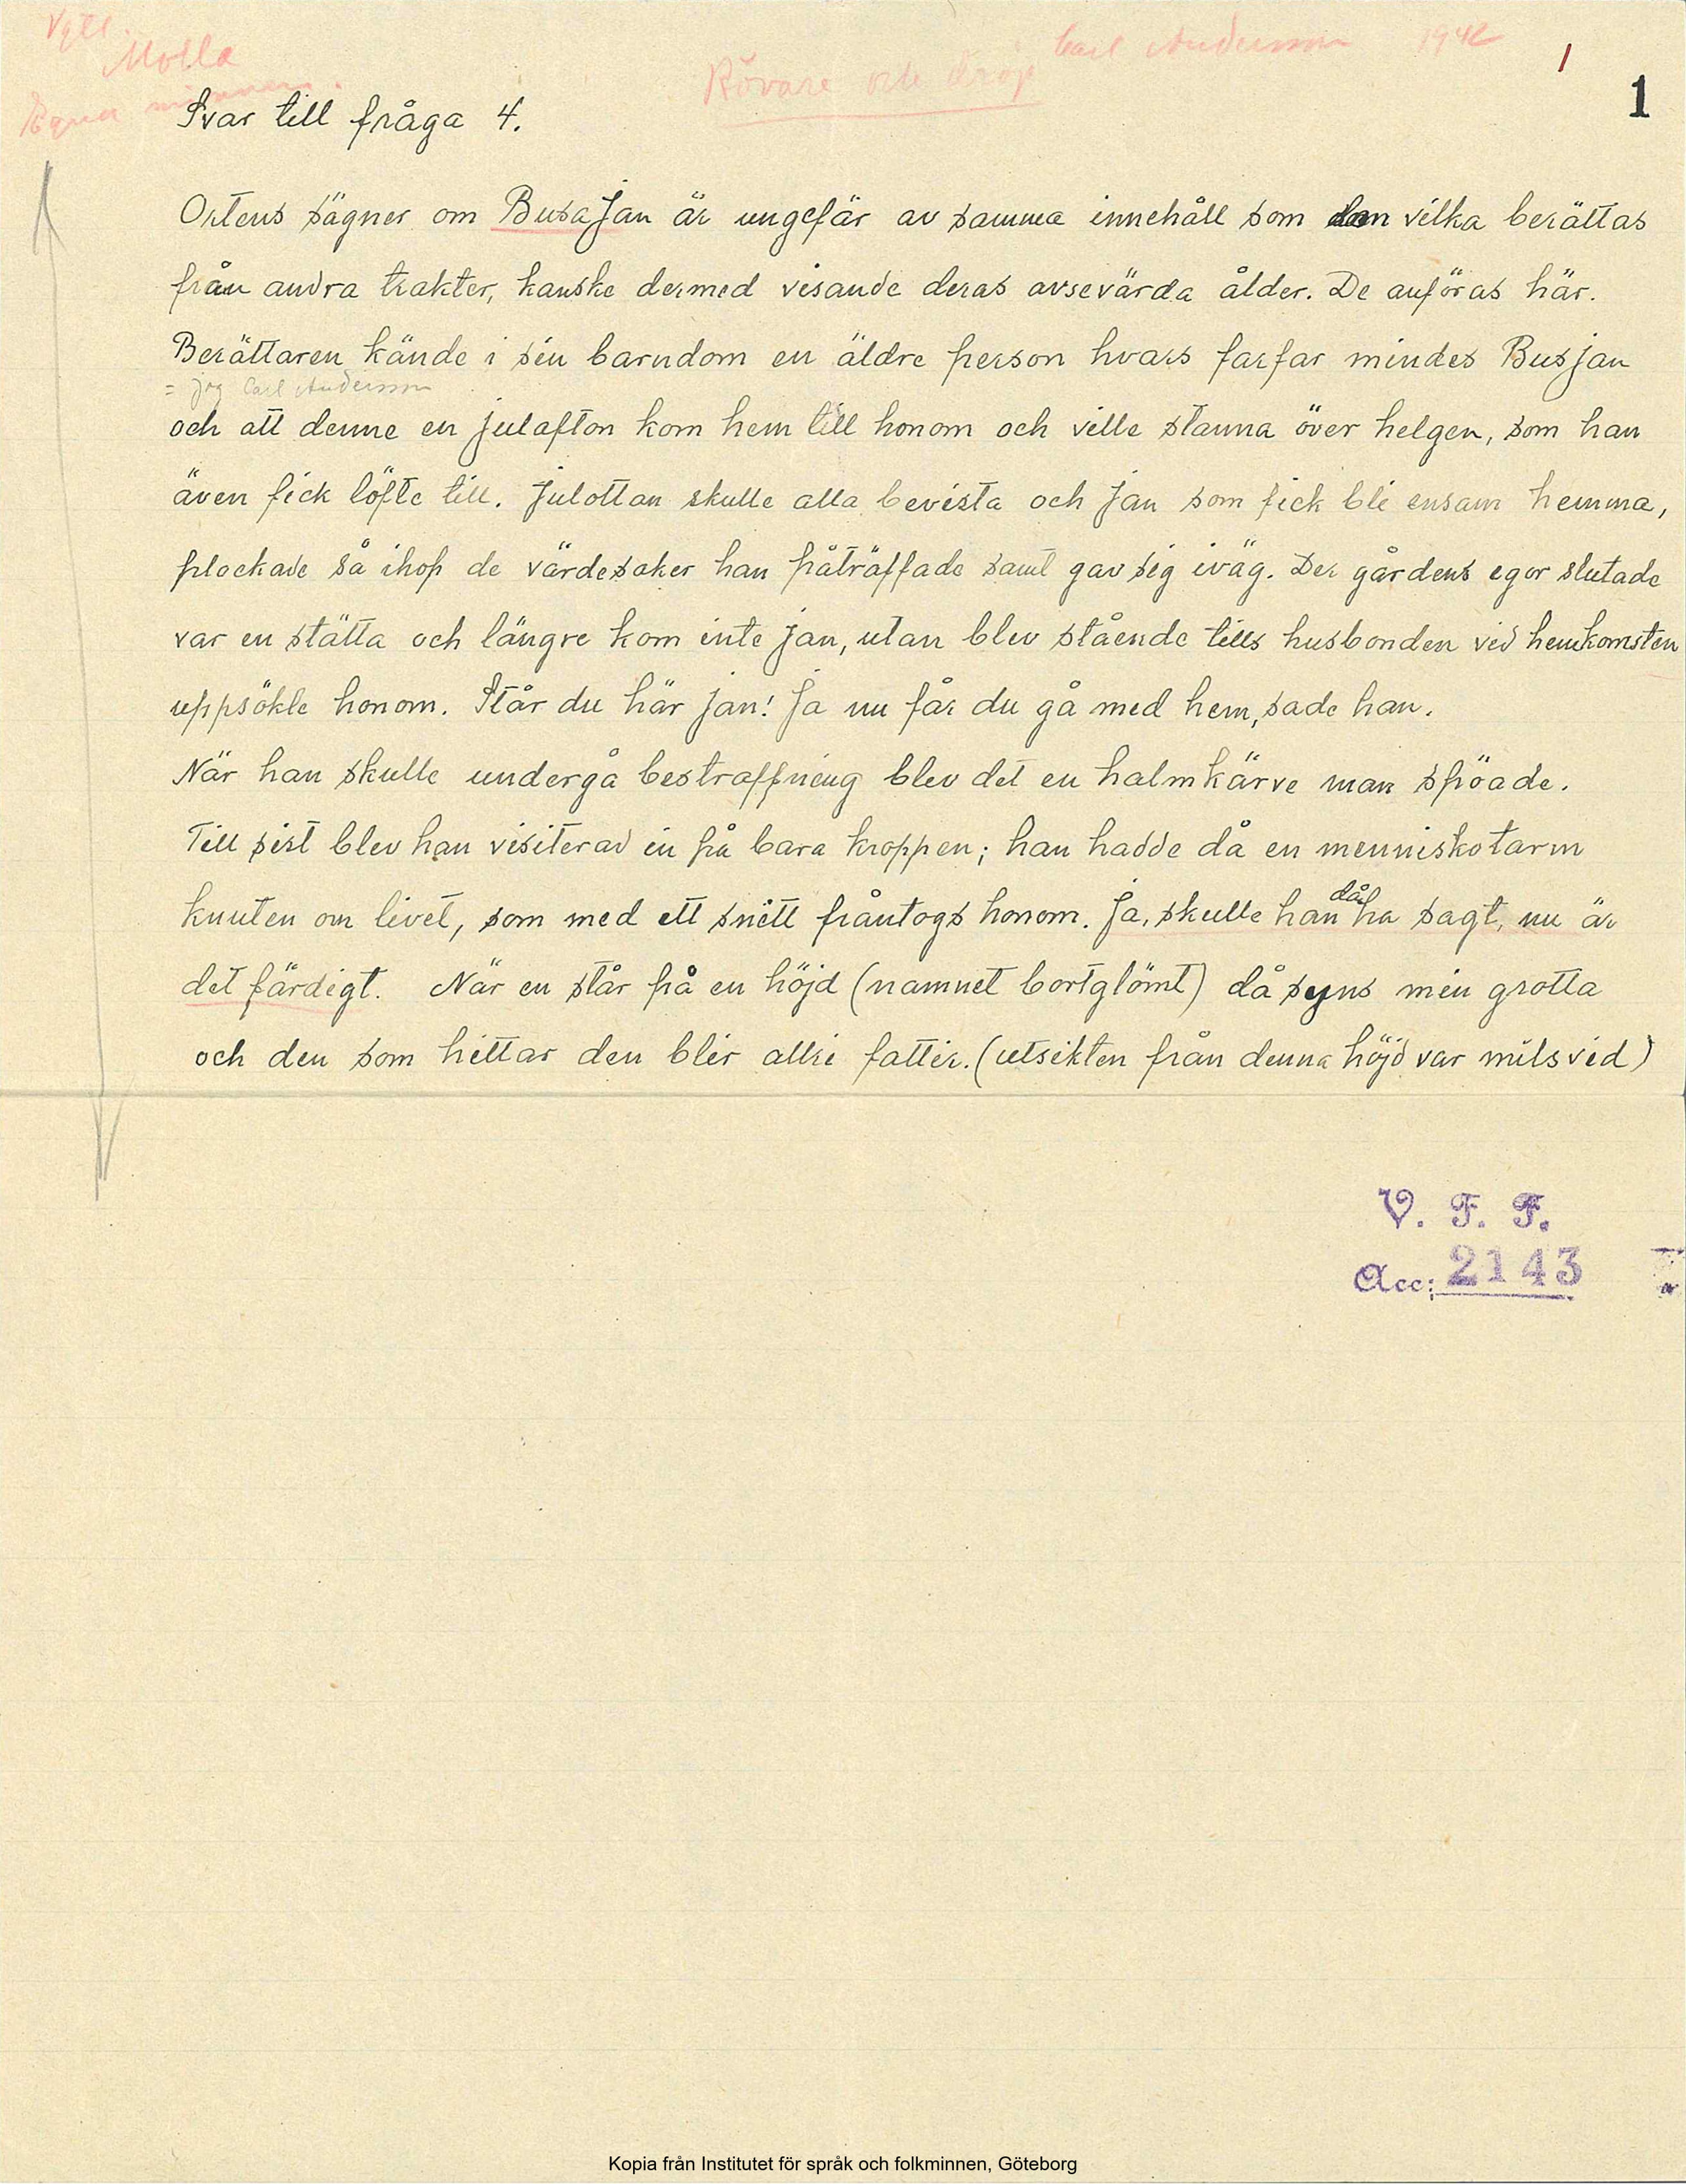 Vgtl.
Molla
Egna minnen.
Rövare och dråp
Carl Andersson 1942
1
1
Svar till fråga 4.
Ortens sägner om Busa Jan är ungefär av samma innehåll som den vilka berättas
från andra trakter, kanske dermed visande deras avsevärda ålder. De anföras här.
Berättaren kände i sin barndom en äldre person hvars farfar mindes Busjan
= jag Carl Andersson
och att denne en julafton kom hem till honom och ville stanna över helgen, som han
även fick löfte till. Julottan skulle alla bevista och Jan som fick bli ensam hemma,
plockade så ihop de värdesaker han påträffade samt gav sig iväg. Der gårdens egor slutade
var en stätta och längre kom inte Jan, utan blev stående tills husbonden vid hemkomsten
uppsökte honom. Står du här Jan! Ja nu får du gå med hem, sade han.
När han skulle undergå bestraffning blev det en halmkärve man spöade.
Till sist blev han visiterad in på bara kroppen; han hadde då en menniskotarm
knuten om livet, som med ett snitt fråntogs honom. Ja, skulle han då ha sagt, nu är
det färdigt. När en står på en höjd (namnet bortglömt) då syns min grotta
och den som hittar den blir allri fattir. (utsikten från denna höjd var milsvid)
V. F. F.
Acc: 2143
Kopia från Institutet för språk och folkminnen, Göteborg